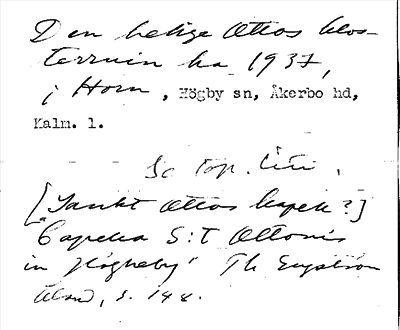 Den helige Ottos klos-
terruin ka 1937,
i Horn, Högby sn, Åkerbo hd,
Kalm. l.
Se top. litt.
[Sankt Ottos kapell?]
"Capella S:t Ottonis
in Högheby" Th Engström
Öland, s. 148.